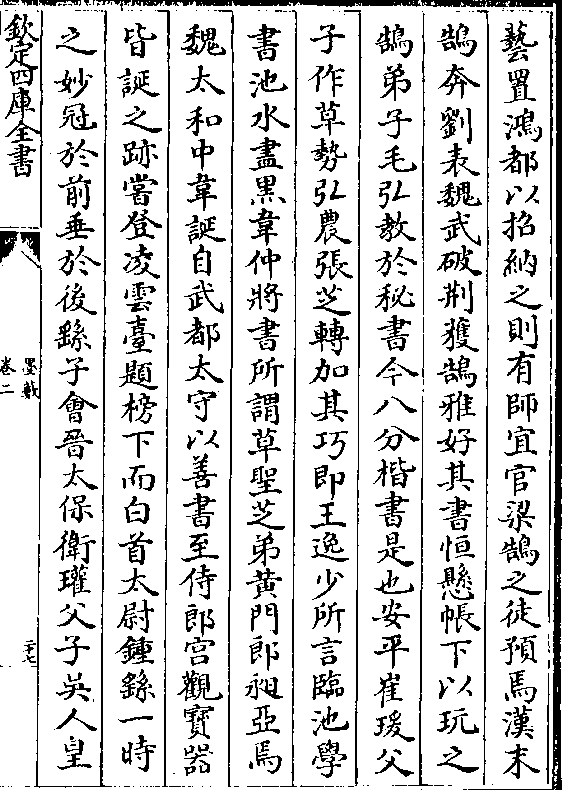 藝置鴻都以招納之則有師宜官梁鵠之徒預焉漢末
鵠奔劉表魏武破荆獲鵠雅好其書恒懸帳下以玩之
鵠弟子毛弘教於秘書今八分楷書是也安平崔瑗父
子作草勢弘農張芝轉加其巧即王逸少所言臨池學
書池水盡黑韋仲將書所謂草聖芝弟黄門郎昶亞焉
魏太和中韋誕自武都太守以善書至侍郎宫觀寶器
皆誕之跡嘗登凌雲臺題榜下而白首太尉鍾繇一時
之妙冠於前垂於後繇子會晉太保衛瓘父子吳人皇
欽定四庫全書
墨藪
卷二
二十七